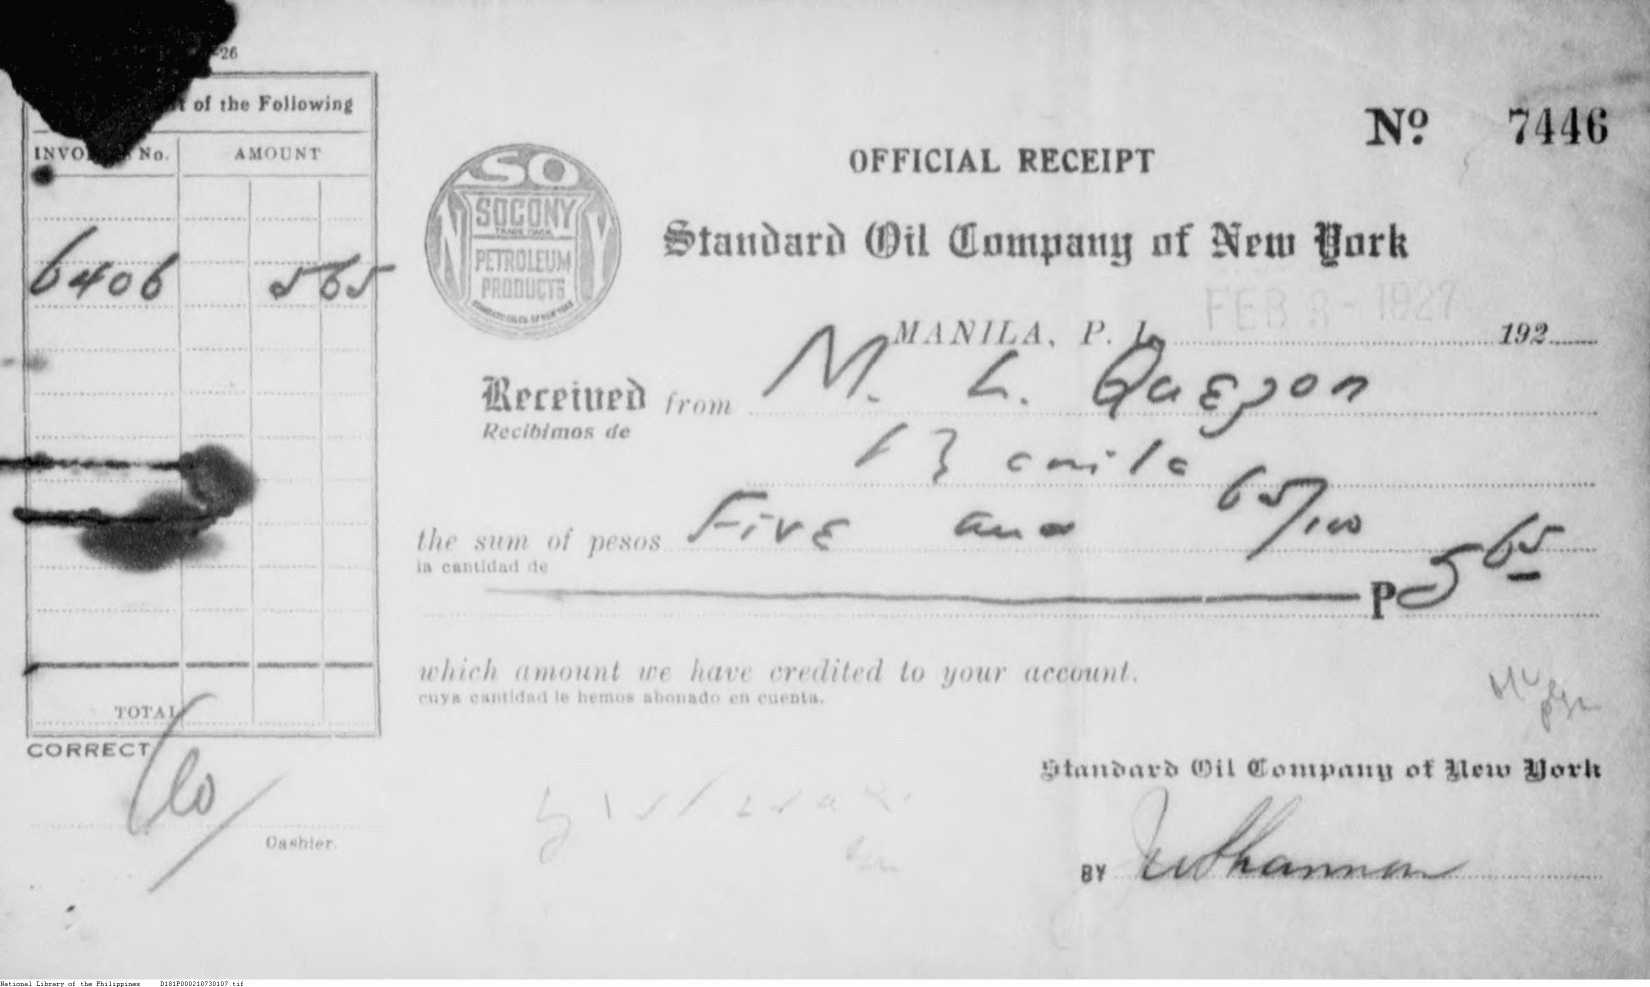 -26
of the Following
No. AMOUNT
6406 5 65
TOTAL
CORRECT
Cashier.
SO
SOCONY
TRADE MARK
NY
PETROLEUM
PRODUCTS
STANDARD OIL CO. OF NEW YORK
No. 7446
OFFICIAL RECEIPT
Standard Oil Company of New York
FEB 8 - 1927
MANILA, P. I. 192
Received from M. L. Quezon
Recibimos de
Manila
the sum of pesos Five and 65/100
la cantidad de
P 5 65
which amount we have credited to your account.
cuya cantidad le hemos abonado en cuenta.
Standard Oil Company of New York
BY Shannon
National Library of the Philippines D181P000210730107.tif